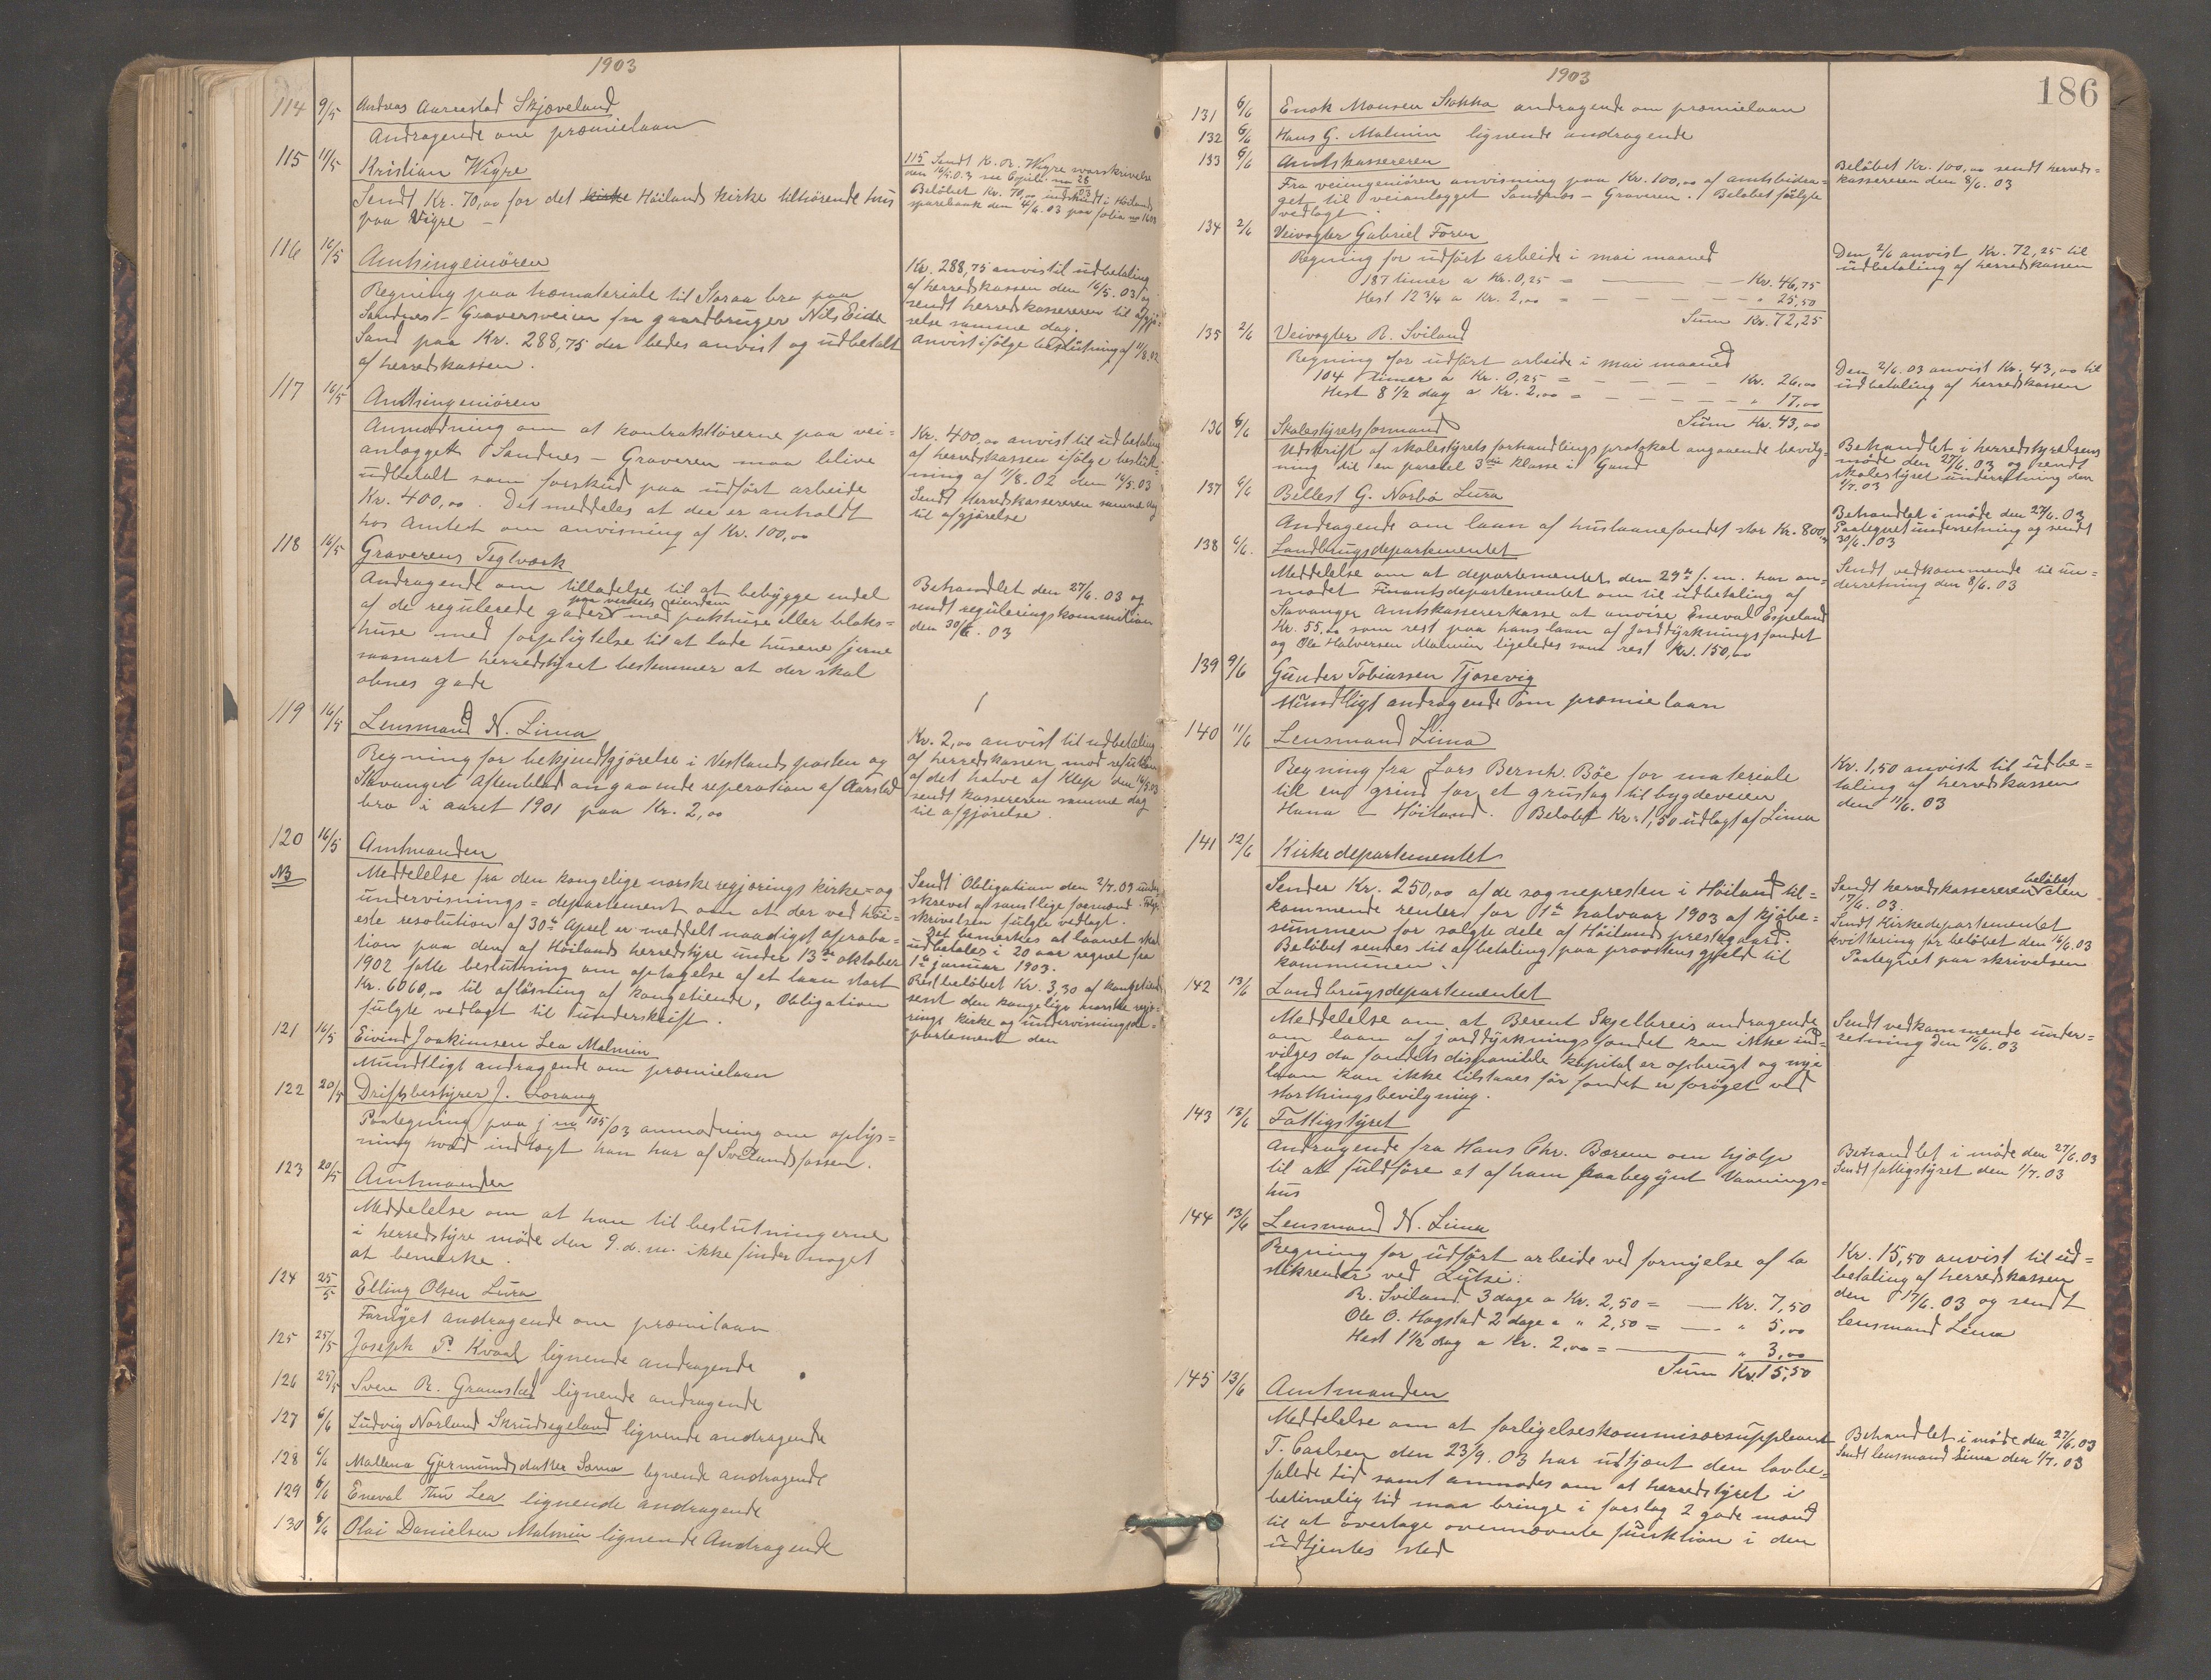 1903
114 9/5 Andreas Aarrestad Skjæveland
Andragende om præmielaan
115 11/5 Kristian Wigre
Sendt Kr. 70,00 for det kirke Höilands kirke tilhörende hus
paa Vigre –
115 Sendt K. R. Wigre svarskrivelse
den 16/5.03 se Copib. no 28
Belöbet Kr. 70,00 indskudt i Höilands
sparebank den 4/6.03 paa folio no
116 16/5 Amtsingeniören
Regning paa træmateriale til Storaa bro paa
Sandnes – Graversveien fra gaardbruger Nils Eide
Sand paa Kr. 288,75 der bedes anvist og udbetalt
af herredskassen.
Kr. 288,75 anvis til udbetaling
af herredskassen den 16/5.03 og
sendt herredskassereren til afgjö=
relse samme dag.
Anvist ifölge beslutning af 11/8.02
117 16/5 Amtsingeniören
Anmodning om at kontraktörerne paa vei=
anlægget Sandnes – Graveren maa blive
udbetalt som forskud paa udfört arbeide
Kr. 400,00. Det meddeles at der er anholdt
hos Amtet om anvisning af Kr. 100,00
Kr. 400,00 anvist til udbetaling
af herredskassen ifölge beslut=
ning af 11/8.02 den 16/5.03
Sendt Herredskassereren samme dag
til afgjörelse
118 16/5 Graverens Teglværk
Andragende om tilladelse til at bebygge endel
paa verkets eiendom
af de regulerede gader med pakhuse eller bloks=
huse med forpligtelse til at lade husene fjerne
saasnart herredstyret bestemmer at der skal
abnes gade
Behandlet den 27/6.03 og
sendt reguleringskommission
den 30/6.03
119 16/5 Lensmand N. Lima
Regning for bekjendtgjörelse i Vestlandsposten og
Stavanger Aftenblad angaaende reperation af Aarstad
bro i aaret 1901 paa Kr. 2,00
Kr. 2,00 anvist til udbetaling
af herredskassen mod refusion
af det halve af Klep den 16/5.03
sendt kassereren samme dag
til afgjörelse.
120 16/5 Amtmanden
NB Meddelelse fra den kongelige norske regjerings kirke= og
undervisnings=departement om at der ved höi=
este resolution af 30te April er meddelt naadigst aproba=
tion paa den af Höilands herredstyre under 13de oktober
1902 fatte beslutning om optagelse af et laan stort
Kr. 6060,00 til aflösning af kongetiende, Obligation
fulgte vedlagt til underskrift.
Sendt Obligation den 2/7.03 under
skrevet af samtlige formænd. Fölge
skrivelsen fulgte vedlagt.
Det bemerkes at laanet skal
udbetales i 20 aar regnet fra
1te januar 1903.
Restbelöbet Kr. 3,30 af kongetiende
sent den kongelige norske regje=
rings kirke og undervisningsde=
partement den
121 16/5 Eivind Joakimsen Lea Malmin
Mundtligt andragende om præmielaan
122 20/5 Driftsbestyrer J. Lorang
Paategning paa j no 105/03 anmodning om oplys=
ning hvad indtægt han har af Svilandsfossen.
123 20/5 Amtmanden
Meddelelse om at han til beslutningerne
i herredstyre möde den 9. d. m. ikke finder noget
at bemerke.
124 25/5 Elling Olsen Lura
Fornyet andragende om præmilaan
125 25/5 Joseph P. Kvaal lignende andragende
126 25/5 Sven R. Gramstad lignende andragende
127 6/6 Ludvig Norland Skrudsegeland lignende andragende
128 6/6 Mallena Gjermundsdatter Soma lignende andragende
129 6/6 Eneval Thu Lea lignende andragende
130 6/6 Olai Danielsen Malmin lignende Andragende
1903
186
131 6/6 Enok Monsen Stokka andragende om præmielaan
132 6/6 Hans G. Malmin lignende andragende
133 6/6 Amtskassereren
Fra veiingeniören anvisning paa Kr. 100,00 af amtsbidra=
get til veianlægget Sandnæs – Graveren. Belöbet fölgte
vedlagt.
Belöbet Kr. 100,00 sendt herreds=
kassereren den 8/6.03
134 2/6 Veivogter Gabriel Foren
Regning for udfört arbeide i mai maaned
187 timer a Kr. 0,25 = — Kr. 46,75
Hest 12 3/4 a Kr. 2,00 = — „ 25,50
Sum Kr. 72,25
Den 2/6 anvist Kr. 72,25 til
udbetaling af herredskassen
135 2/6 Veivogter R. Sviland
Regning for udfört arbeide i mai maaned
104 timer a Kr. 0,25 = — Kr. 26,00
Hest 8 1/2 dag a Kr. 2,00 = — „ 17,00
Sum Kr. 43,00
Den 2/6.03 anvist Kr. 43,00 til
udbetaling af herredskassen
136 6/6 Skolestyrets formand
Udskrift af skolestyrets forhandlings protokol angaaende bevilg=
ning til en paralel 3die klasse i Gand
Behandlet i herredstyrelsens
möde den 27/6.03 og sendt
skolestyret underretning den
1/7.03
137 6/6 Bellest G. Norbö Lura
Andragende om laan af huslaanefondet stor Kr. 800,00
Behandlet i möde den 27/6.03
Paategnet underretning og sendt
30/6.03
138 6/6. Landbrugsdepartementet
Meddelelse om at departementet den 29de f. m. har an=
modet Finantsdepartementet om til udbetaling af
Stavanger Amtskassererkasse at anvise Eneval Espeland
Kr. 55,00 som rest paa hans laan af Jorddyrkningsfondet
og Ole Halversen Malmin ligeledes som rest Kr. 150,00
Sendt vedkommende til un=
derretning den 8/6.03
139 9/6 Gunder Tobiassen Tjosevig
Mundtligt andragende om præmielaan
140 11/6 Lensmand Lima
Regning fra Lars Bernh. Böe for materiale
till en grind for et grustag til bygdeveien
Hana – Höiland. Belöbet Kr. 1,50 udlagt af Lima
Kr. 1,50 anvist til udbe=
taling af herredskassen
den 11/6.03
141 12/6 Kirkedepartementet
Sender Kr. 250,00 af de sognepresten i Höiland til=
kommende renter for 1te halvaar 1903 af kjöbe=
summen for solgte dele af Höilands prestegaard.
Belöbet sendes til afbetaling paa provstens gjeld til
kommunen.
belöbet
Sendt herredskassereren den
17/6.03.
Sendt Kirkedepartementet
kvittering for belöbet den 16/6.03
Paategnet paa skrivelsen
142 13/6 Landbrugsdepartementet
Meddelelse om at Berent Skjelbreis andragende
om laan af jorddyrkningsfondet kan ikke ind=
vilges da fondets disponible kapital er opbrugt og nyje
laan kan ikke tilstaaes för fondet er foröget ved
storthingsbevilgning.
Sendt vedkommende under=
retning den 16/6.03
143 13/6 Fattigstyret
Andragende fra Hans Chr. Bærem om hjælp
til at fuldföre et af ham paabegynt Vaanings=
hus
Behandlet i möde den 27/6.03
Sendt fattigstyret den 1/7.03
144 13/6 Lensmand N. Lima
Regning for udfört arbeide ved fornyelse af to
stikrender ved Lutsi:
R. Sviland 3 dage a Kr. 2,50 = — Kr. 7,50
Ole O. Hogstad 2 dage a „ 2,50 = — „ 5,00
Hest 1 1/2 dag a Kr. 2,00 = — „ 3,00
Sum Kr. 15,50
Kr. 15,50 anvist til ud=
betaling af herredskassen
den 17/6.03 og sendt
lensmand Lima
145 13/6 Amtmanden
Meddelelse om at forligelseskommisærsuppleant
T. Carlsen den 23/9.03 har udtjent den lovbe=
falede tid samt anmodes om at herredstyret i
betimelig tid maa bringe i forslag 2 gode mænd
til at overtage ovennævnte funktion i den
udtjentes sted
Behandlet i möde den 27/6.03
Sendt lensmand Lima den 1/7.03